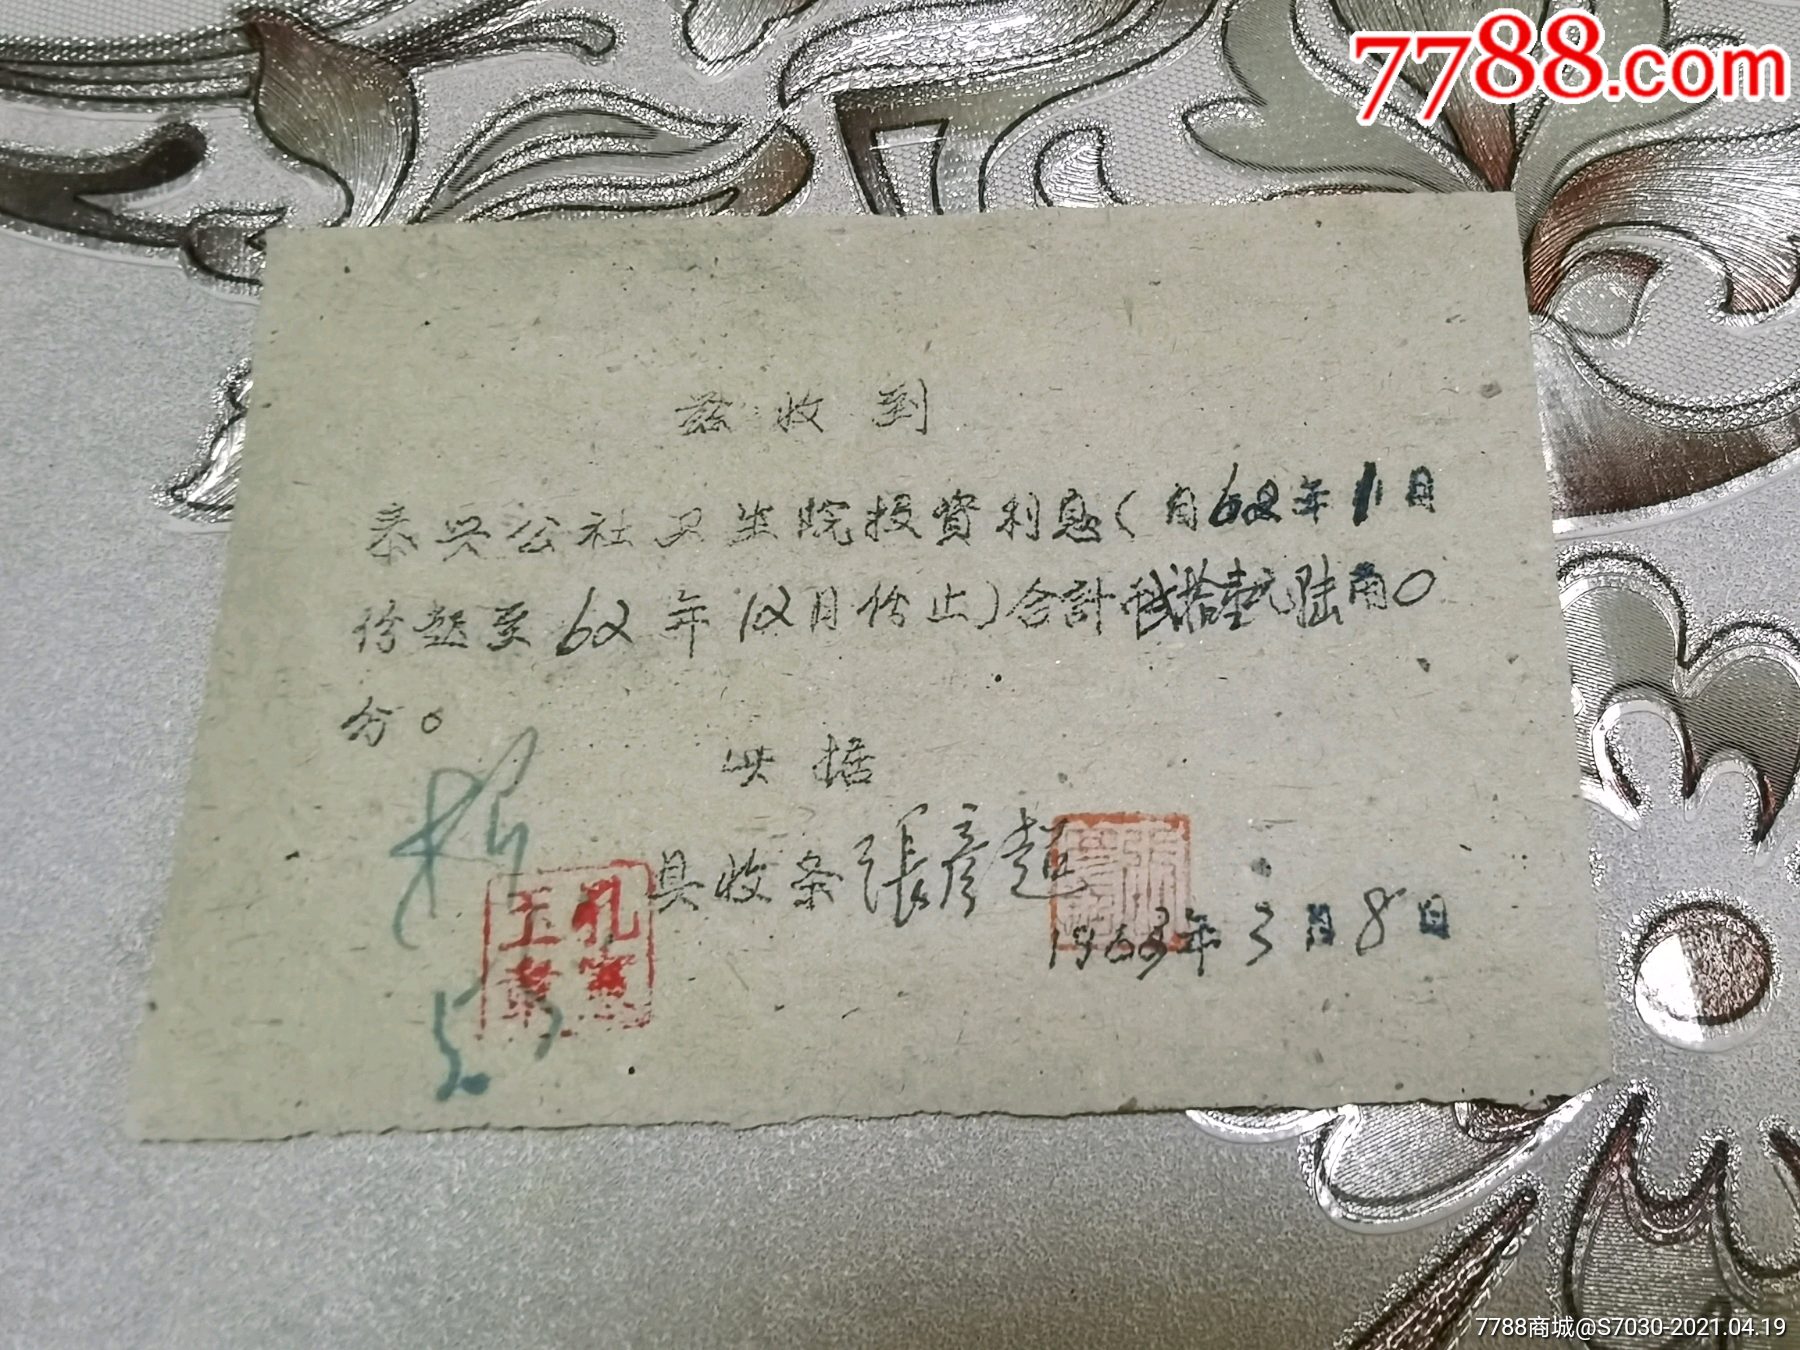 7788.com
兹收到
泰兴公社卫生院投資利息(自62年1月
份起至62年12月份止)合計貳拾壹元陆角0
分。
此据
具收条張彦超
1963年3月8日
孔
王
章
5.
7788商城@S7030-2021.04.19